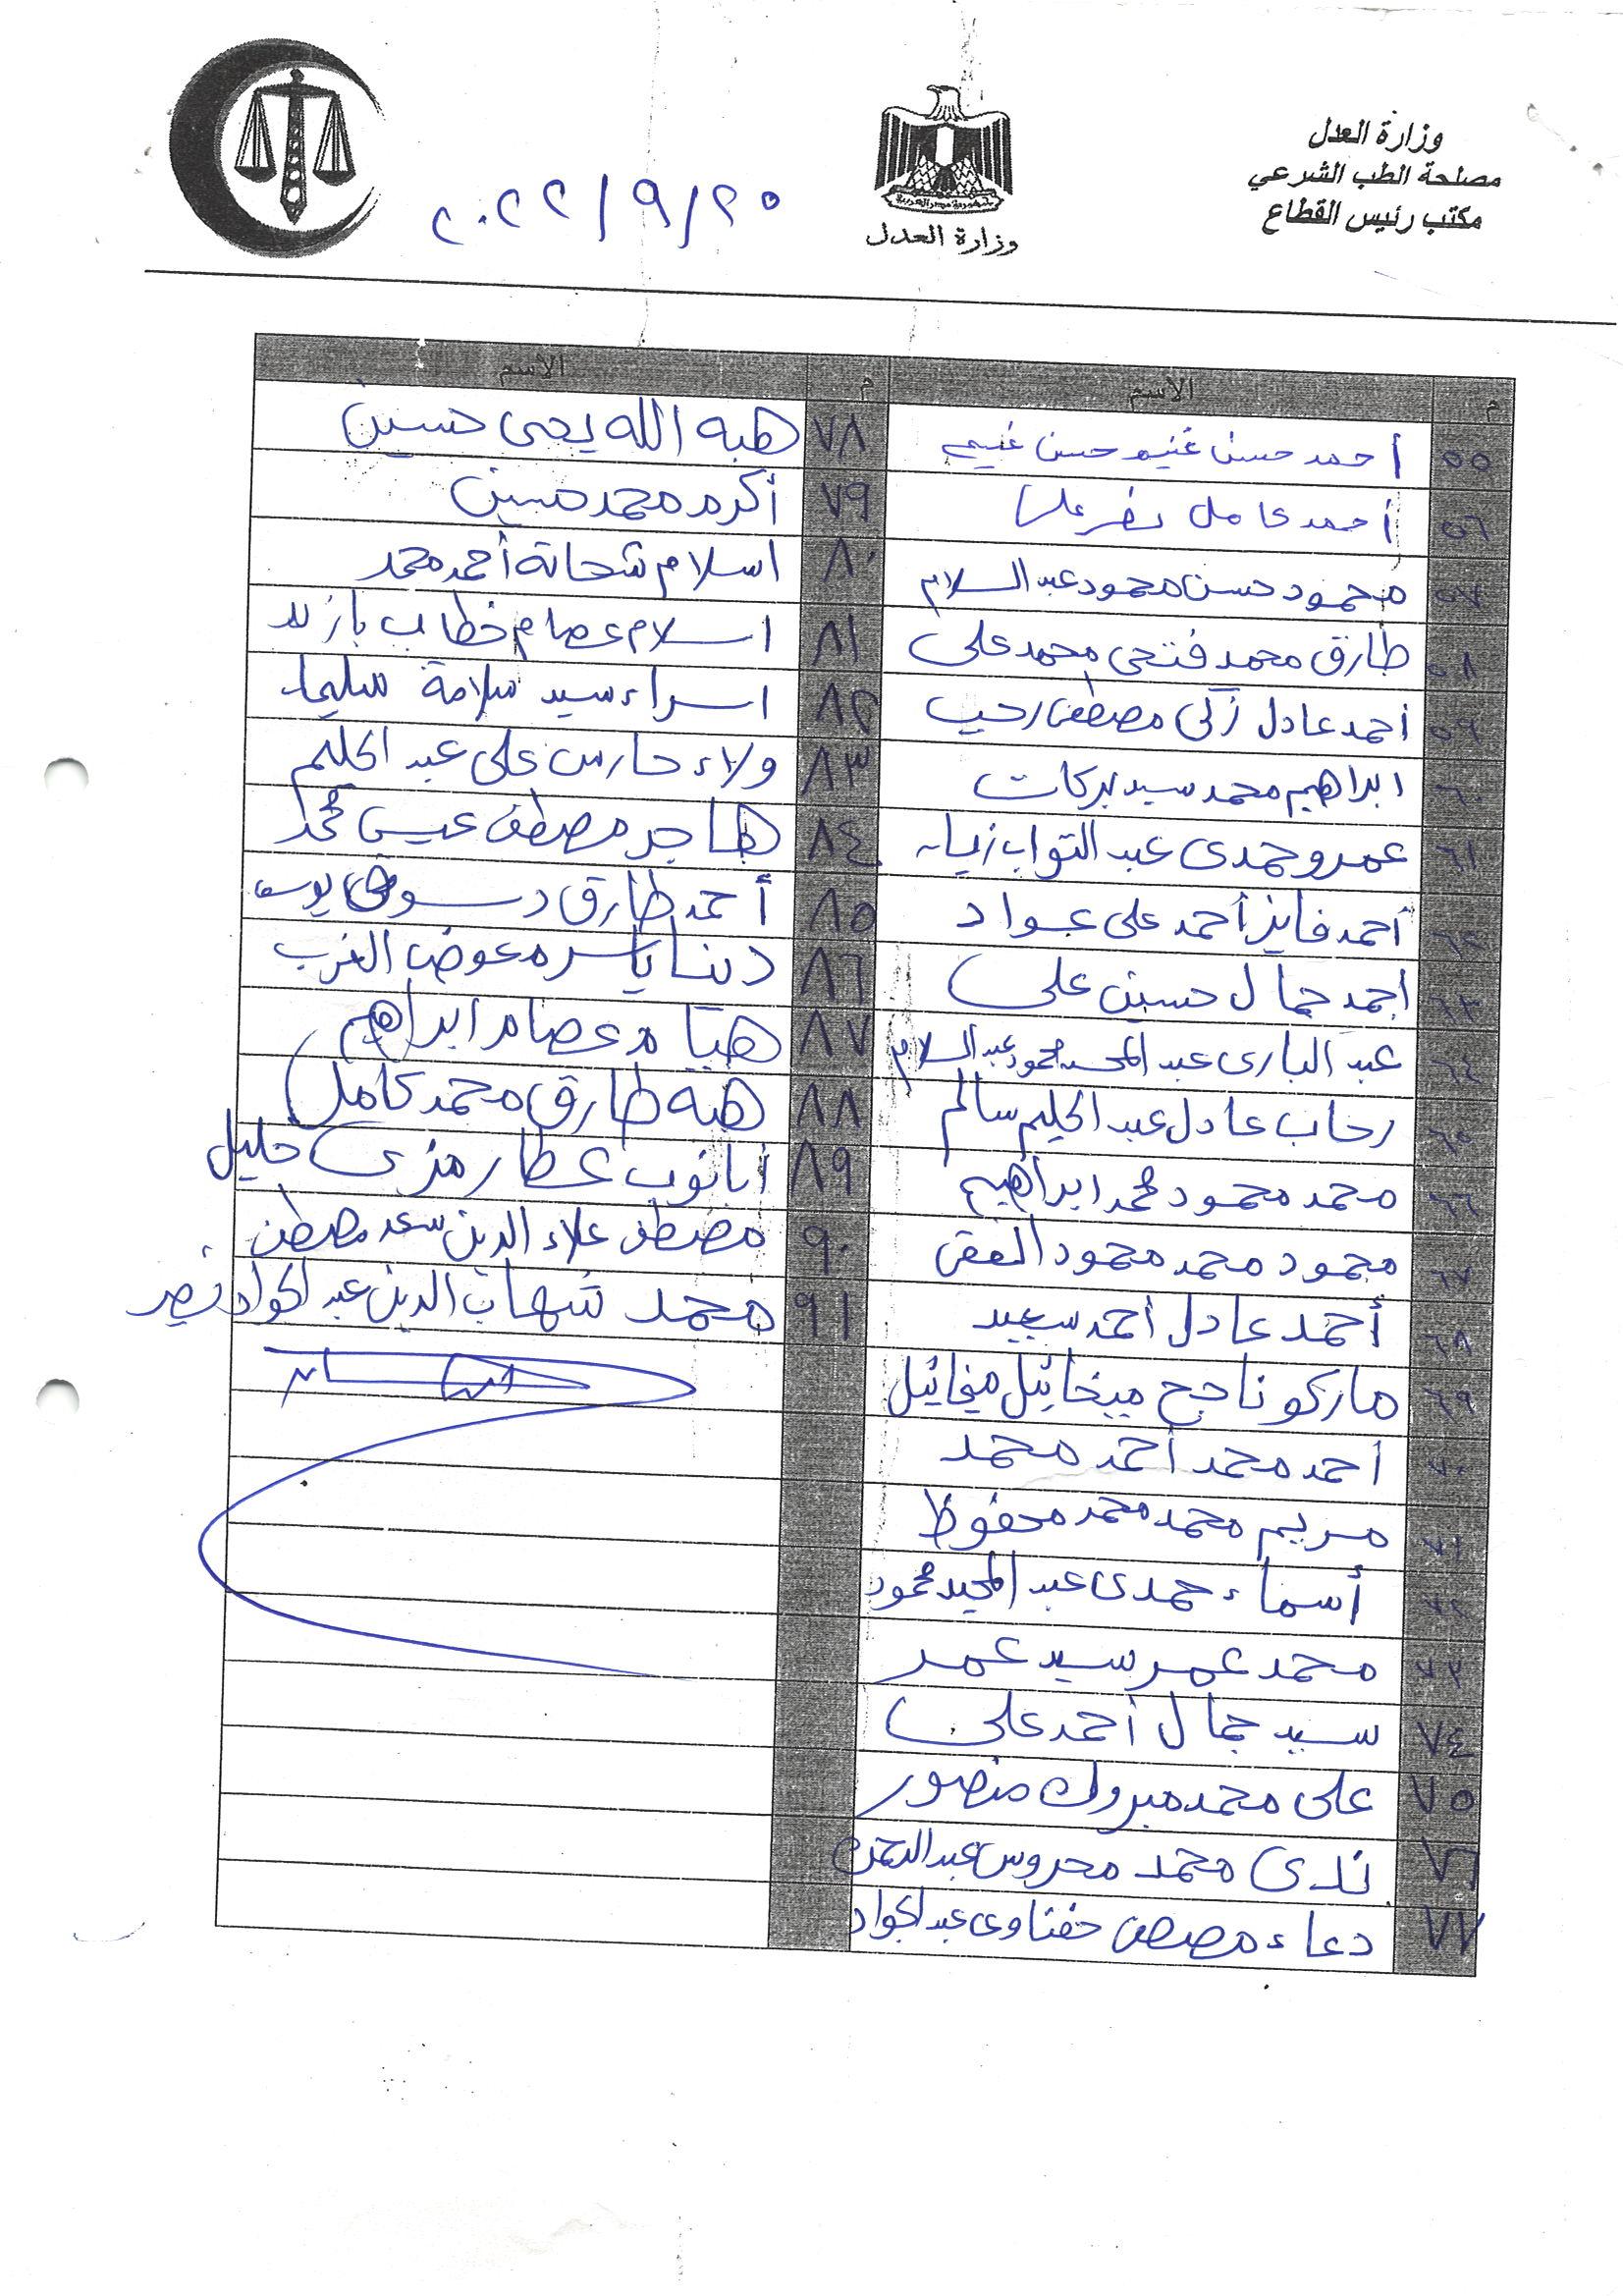 وزارة العدل
مصلحة الطب الشرعي
مكتب رئيس القطاع
جمهورية مصر العربية
وزارة العدل
٢٠٢٢/٩/٢٥
م الاسم
٥٥ أحمد حسن غنيم حسن غنيم
٥٦ أحمد كامل نصر على
٥٧ محمود حسن محمود عبد السلام
٥٨ طارق محمد فتحى محمد على
٥٩ أحمد عادل زكى مصطفى رجب
٦٠ ابراهيم محمد سيد بركات
٦١ عمرو حمدى عبد التواب زيان
٦٢ أحمد فايز أحمد على عواد
٦٣ احمد جمال حسين على
٦٤ عبد البارى عبد المحسن محمود عبد السلام
٦٥ رحاب عادل عبد الحليم سالم
٦٦ محمد محمود محمد ابراهيم
٦٧ محمود محمد محمود الفقى
٦٨ أحمد عادل أحمد سعيد
٦٩ ماركو ناجح ميخائيل ميخائيل
٧٠ أحمد محمد أحمد محمد
٧١ مريم محمد محمد محفوظ
٧٢ أسماء حمدى عبد المجيد محمود
٧٣ محمد عمر سيد عمر
٧٤ سيد جمال أحمد على
٧٥ على محمد مبروك منصور
٧٦ ندى محمد محروس عبد الرحمن
٧٧ دعاء مصطفى حفناوى عبد الجواد
م الاسم
٧٨ هبه الله يحى حسين
٧٩ أكرم محمد حسين
٨٠ اسلام شحاتة أحمد محمد
٨١ اسلام عصام خطاب
٨٢ اسراء سيد سلامة سليمان
٨٣ ولاء حارس على عبد الحليم
٨٤ هاجر مصطفى عيسى محمد
٨٥ أحمد طارق دسوقى يوسف
٨٦ دينا ياسر معوض الغرب
٨٧ هيام عصام ابراهيم
٨٨ هبه طارق محمد كامل
٨٩ أبانوب عطا رمزى خليل
٩٠ مصطفى علاء الدين سعد مصطفى
٩١ محمد شهاب الدين عبد الجواد نصير